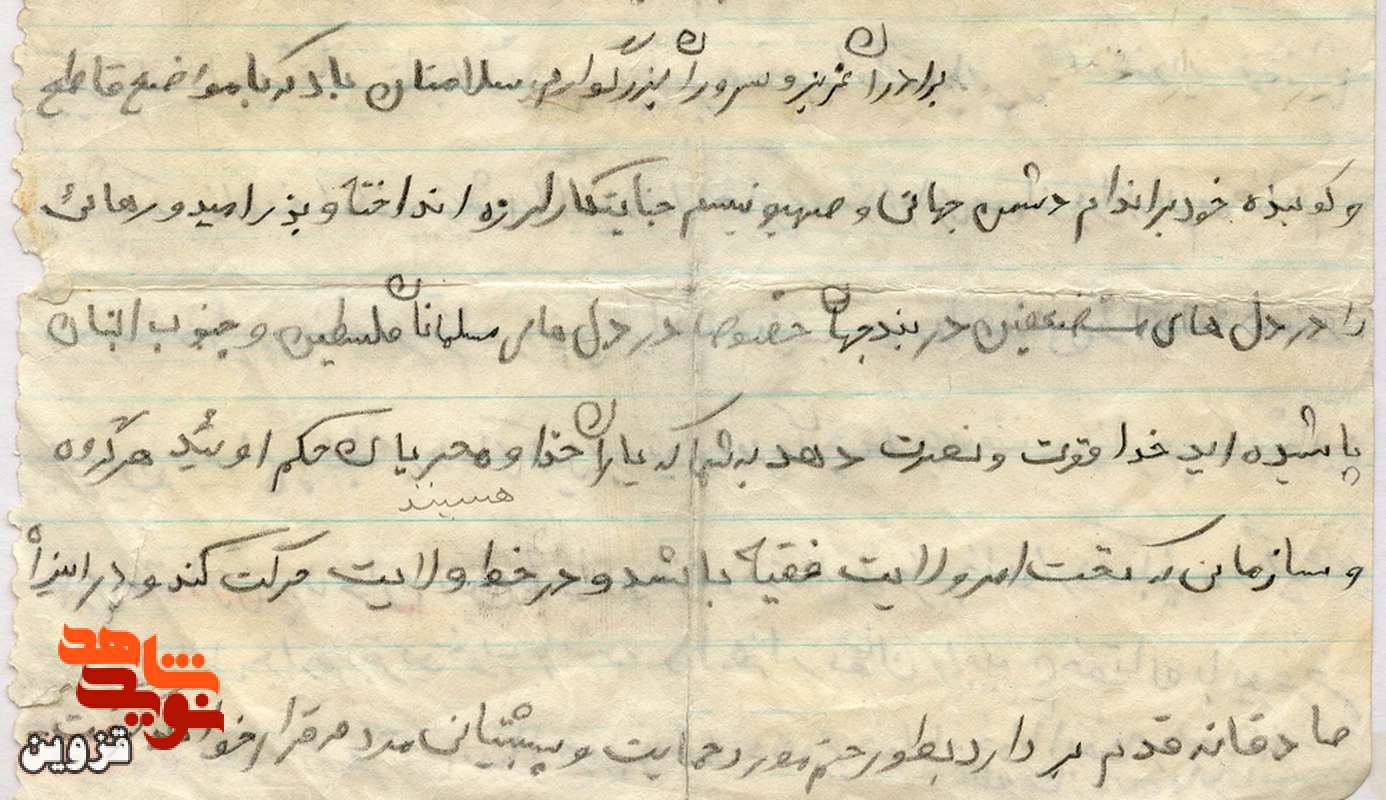 برادران عزیز و سروران بزرگوارم، سلامتان باد که با مواضع قاطع
و کوبنده خود بر اندام دشمن جهانی و صهیونیسم جنایتکار لرزه انداخته و بذر امید و رهائی
را در دل های مستضعفین در بند جهان خصوصا در دل های مسلمانان فلسطین و جنوب لبنان
پاشیده اید خدا قوت و نصرت دهد به شما که یاران خدا و مجریان حکم اوئید هر گروه
هستند
و سازمانی که تحت امر ولایت فقیه باشد و در خط ولایت حرکت کند و در این راه
صادقانه قدم بر دارد بطور حتم مورد حمایت و پشتیبانی مردم قرار
شاهد
نوید
قزوین